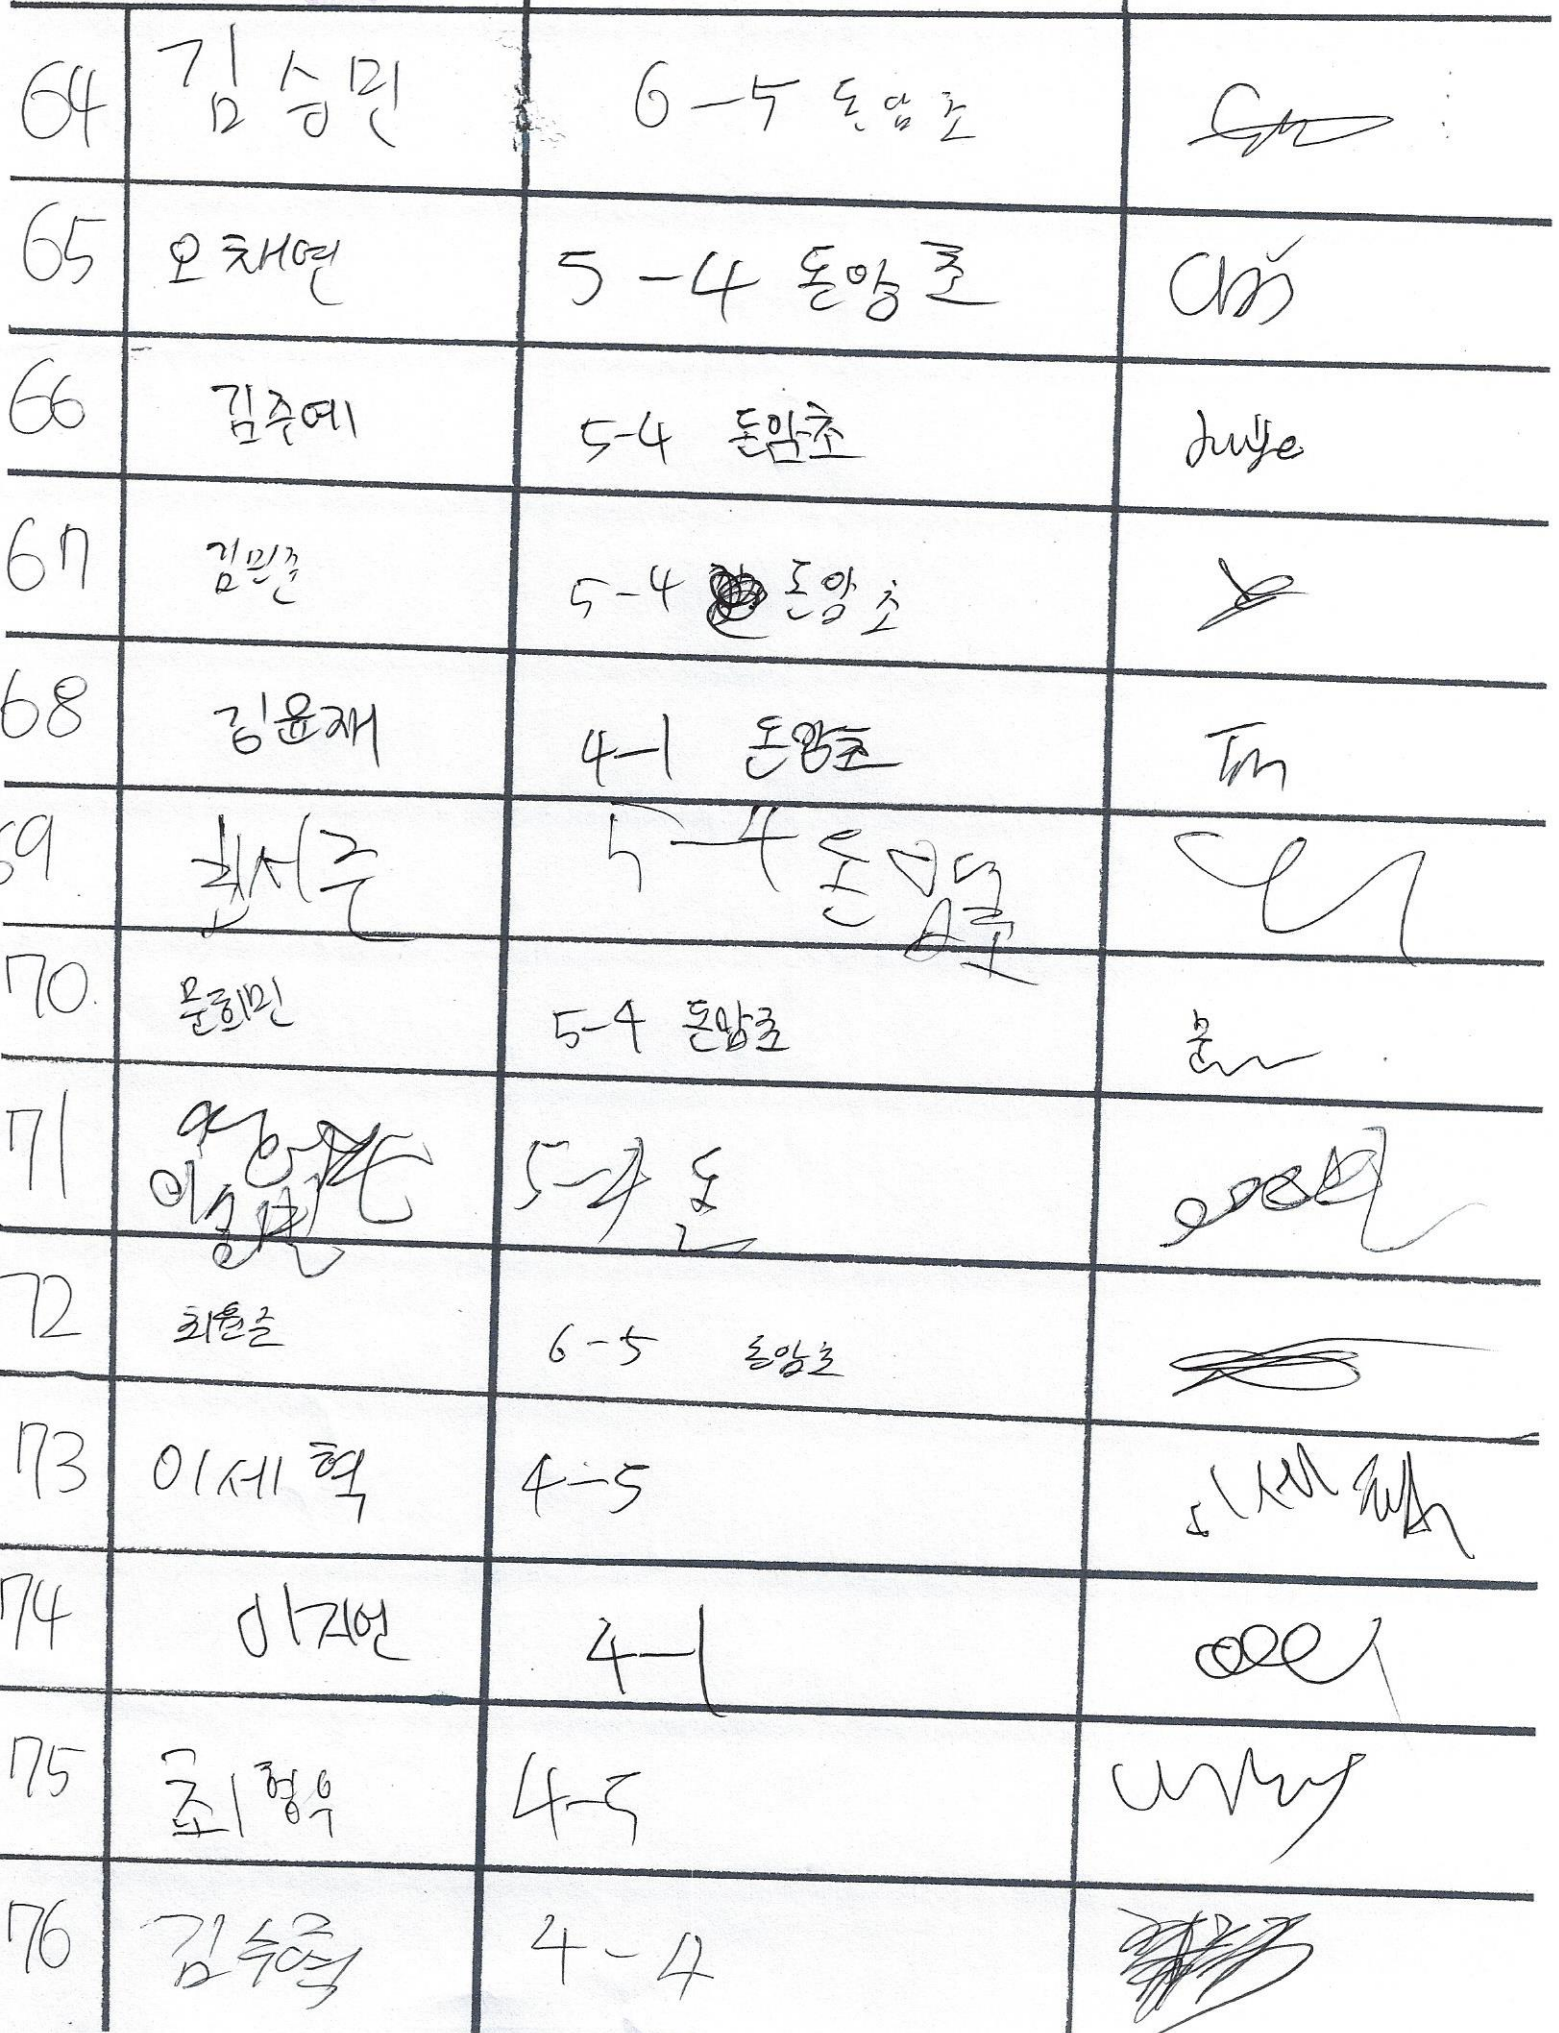 64 김승민 6-5 돈암초
65 오채연 5-4 돈암초
66 김주예 5-4 돈암초 Juye
67 김민준 5-4 돈암초
68 김윤재 4-1 돈암초
69 서준 5-4 돈암초
70 문희민 5-4 돈암초 문
71 5-4 돈
72 최원준 6-5 돈암초
73 이세혁 4-5 이세혁
74 이지언 4-1
75 최형우 4-5
76 김수혁 4-4